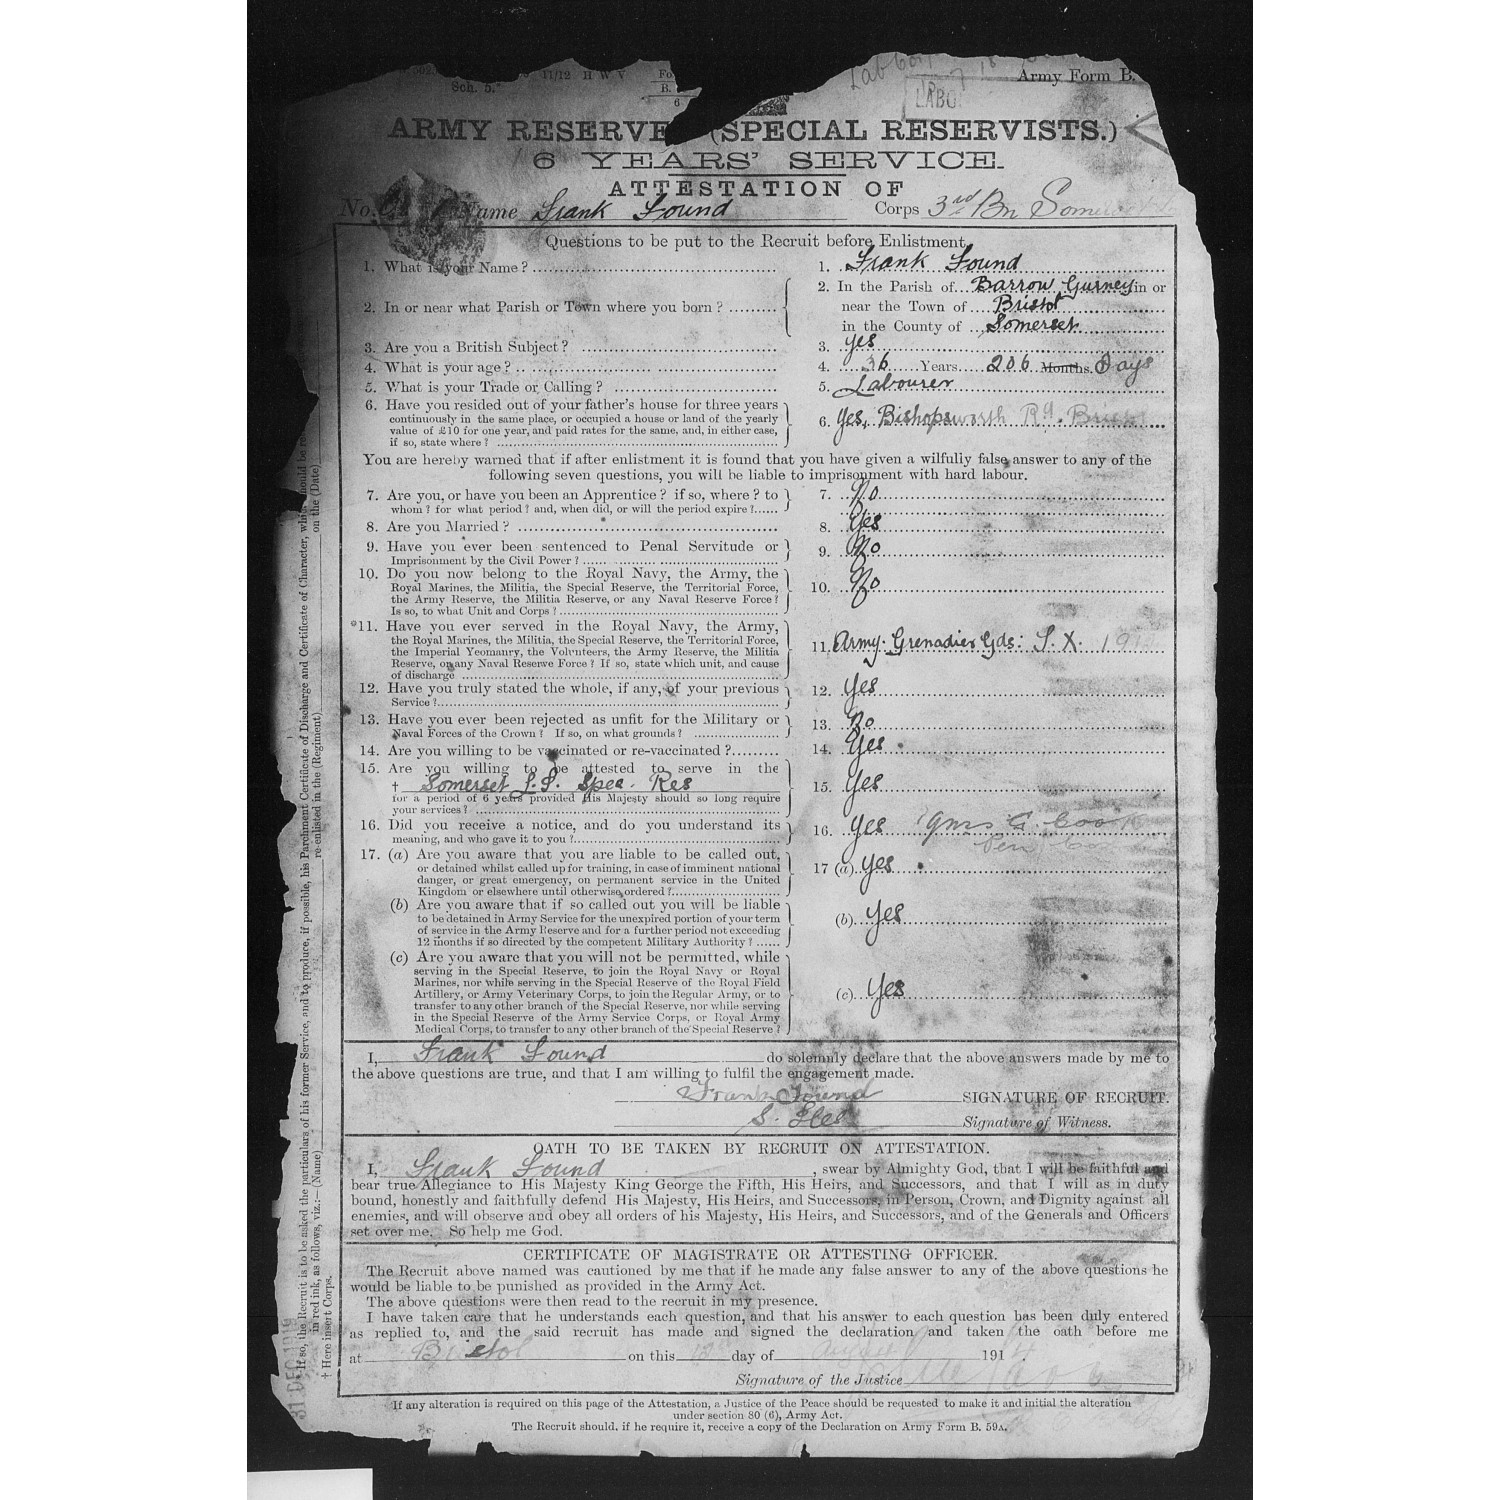 11/12 H W V
Sch. 5.
6
Army Form B.
LABO
ARMY RESERVE (SPECIAL RESERVISTS.)
6 YEARS' SERVICE.
ATTESTATION OF
No. Name Frank Found Corps 3rd Bn Somerset
Questions to be put to the Recruit before Enlistment.
1. What is your Name? 1. Frank Found
2. In or near what Parish or Town where you born? 2. In the Parish of Barrow Gurney in or
near the Town of Bristol
in the County of Somerset
3. Are you a British Subject? 3. Yes
4. What is your age? 4. 36 Years 206 Months. Days
5. What is your Trade or Calling? 5. Labourer
6. Have you resided out of your father's house for three years
continuously in the same place, or occupied a house or land of the yearly
value of £10 for one year, and paid rates for the same, and, in either case,
if so, state where? 6. Yes, Bishopsworth Rd. Bristol
You are hereby warned that if after enlistment it is found that you have given a wilfully false answer to any of the
following seven questions, you will be liable to imprisonment with hard labour.
7. Are you, or have you been an Apprentice? if so, where? to 7. No
whom? for what period? and, when did, or will the period expire?
8. Are you Married? 8. Yes
9. Have you ever been sentenced to Penal Servitude or 9. No
Imprisonment by the Civil Power?
10. Do you now belong to the Royal Navy, the Army, the
Royal Marines, the Militia, the Special Reserve, the Territorial Force, 10. No
the Army Reserve, the Militia Reserve, or any Naval Reserve Force?
Is so, to what Unit and Corps?
*11. Have you ever served in the Royal Navy, the Army,
the Royal Marines, the Militia, the Special Reserve, the Territorial Force,
the Imperial Yeomanry, the Volunteers, the Army Reserve, the Militia 11. Army. Grenadier Gds: T.X.
Reserve, or any Naval Reserve Force? If so, state which unit, and cause
of discharge
12. Have you truly stated the whole, if any, of your previous 12. Yes
Service?
13. Have you ever been rejected as unfit for the Military or 13. No
Naval Forces of the Crown? If so, on what grounds?
14. Are you willing to be vaccinated or re-vaccinated? 14. Yes
15. Are you willing to be attested to serve in the
† Somerset L.I. Spec. Res 15. Yes
for a period of 6 years provided His Majesty should so long require
your services?
16. Did you receive a notice, and do you understand its 16. Yes Qms G. Cook
meaning, and who gave it to you?
17. (a) Are you aware that you are liable to be called out, 17 (a) Yes
or detained whilst called up for training, in case of imminent national
danger, or great emergency, on permanent service in the United
Kingdom or elsewhere until otherwise ordered?
(b) Are you aware that if so called out you will be liable
to be detained in Army Service for the unexpired portion of your term (b) Yes
of service in the Army Reserve and for a further period not exceeding
12 months if so directed by the competent Military Authority?
(c) Are you aware that you will not be permitted, while
serving in the Special Reserve, to join the Royal Navy or Royal
Marines, nor while serving in the Special Reserve of the Royal Field
Artillery, or Army Veterinary Corps, to join the Regular Army, or to (c) Yes
transfer to any other branch of the Special Reserve, nor while serving
in the Special Reserve of the Army Service Corps, or Royal Army
Medical Corps, to transfer to any other branch of the Special Reserve?
I, Frank Found do solemnly declare that the above answers made by me to
the above questions are true, and that I am willing to fulfil the engagement made.
Frank Found SIGNATURE OF RECRUIT.
S. Signature of Witness.
OATH TO BE TAKEN BY RECRUIT ON ATTESTATION.
I, Frank Found, swear by Almighty God, that I will be faithful and
bear true Allegiance to His Majesty King George the Fifth, His Heirs, and Successors, and that I will as in duty
bound, honestly and faithfully defend His Majesty, His Heirs, and Successors, in Person, Crown, and Dignity against all
enemies, and will observe and obey all orders of his Majesty, His Heirs, and Successors, and of the Generals and Officers
set over me. So help me God.
CERTIFICATE OF MAGISTRATE OR ATTESTING OFFICER.
The Recruit above named was cautioned by me that if he made any false answer to any of the above questions he
would be liable to be punished as provided in the Army Act.
The above questions were then read to the recruit in my presence.
I have taken care that he understands each question, and that his answer to each question has been duly entered
as replied to, and the said recruit has made and signed the declaration and taken the oath before me
at Bristol on this day of August 1914
Signature of the Justice
If any alteration is required on this page of the Attestation, a Justice of the Peace should be requested to make it and initial the alteration
under section 80 (6), Army Act.
The Recruit should, if he require it, receive a copy of the Declaration on Army Form B. 59A.
If so, the Recruit is to be asked the particulars of his former Service, and to produce, if possible, his Parchment Certificate of Discharge and Certificate of Character, which should be
in red ink, as follows, viz.:—(Name) re-enlisted in the (Regiment) on the (Date)
† Here insert Corps.
31 DEC